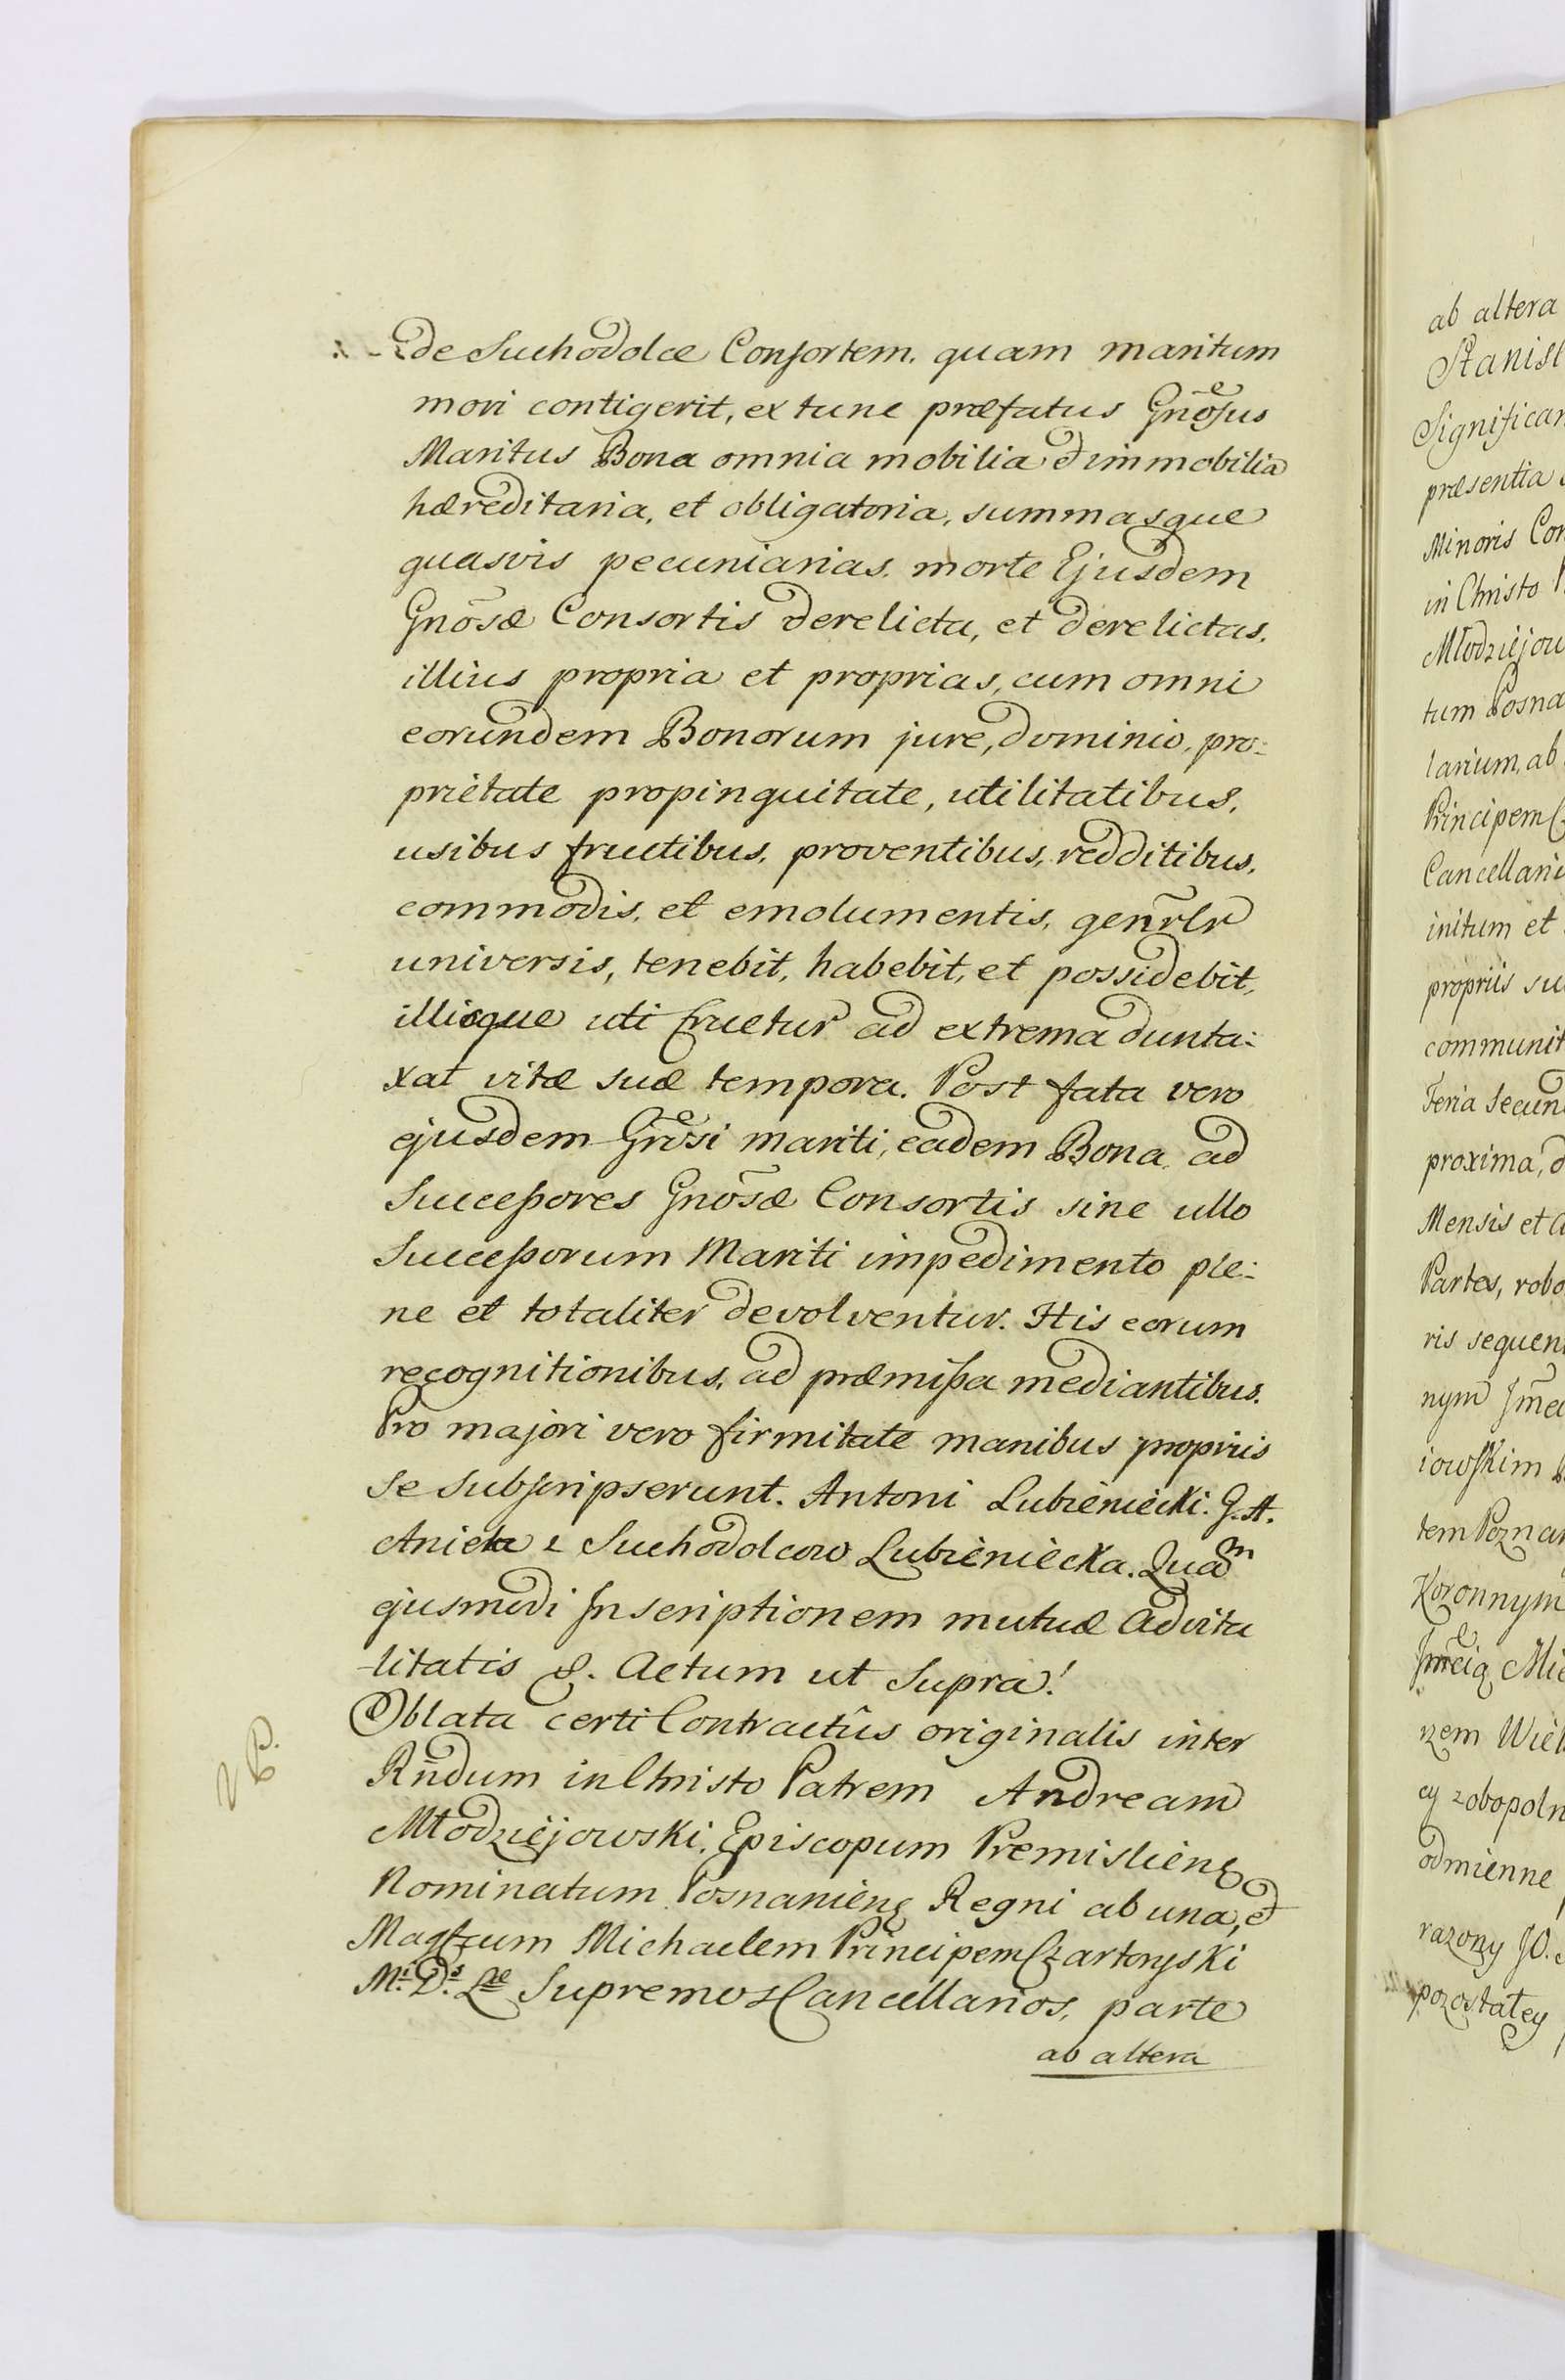 de Suchodolce Consortem. quam maritum
mori contigerit, ex tunc præfatus Gnõsus
Maritus Bona omnia mobilia et immobilia
hæreditaria, et obligatoria, summasque
quasvis pecuniarias. morte Ejusdem
Gnõsæ Consortis derelicta, et derelictas.
illius propria et proprias, cum omni
eorundem Bonorum jure, dominio, pro:
prietate propinquitate, utilitatibus,
usibus fructibus, proventibus, redditibus,
commodis, et emolumentis, genr̃lr
universis, tenebit, habebit, et possidebit,
illisque uti fruetur ad extrema dunta:
xat vitæ suæ tempora. Post fata vero
ejusdem Gnõsi mariti, eadem Bona ad
Successores Gnõsæ Consortis sine ullo
Successorum Mariti impedimento ple:
ne et totaliter devolventur. His eorum
recognitionibus, ad præmissa mediantibus.
Pro majori vero firmitate manibus propriis
se subscripserunt. Antoni Lubieniecki. G. A.
Aniela z Suchodolcow Lubieniecka. Quam
ejusmodi Inscriptionem mutuæ advita
-litatis &. Actum ut Supra!
Oblata certi Contractûs originalis inter
Rñdum in Christo Patrem Andream
Młodziejowski, Episcopum Premislieng
Nominatum Posnanieng Regni ab una, et
Magfcum Michaelem Principem Czartoryski
M: D: Læ Supremos Cancellarios, parte
ab altera
ab altera
Stanisl
Significan
præsentia
Minoris Con
in Christo
Młodziejow
tum Posna
larium, ab
Principem
Cancellari
initum et
propriis su
communit
Feria Secun
proxima, d
Mensis et
Partes, robo
ris sequen
nym Jmc
iowskim
tem Poznan
Koronnym
Jmcią Mic
rzem Wiel
cy zobopoln
odmienne
razony JO.
pozostałey